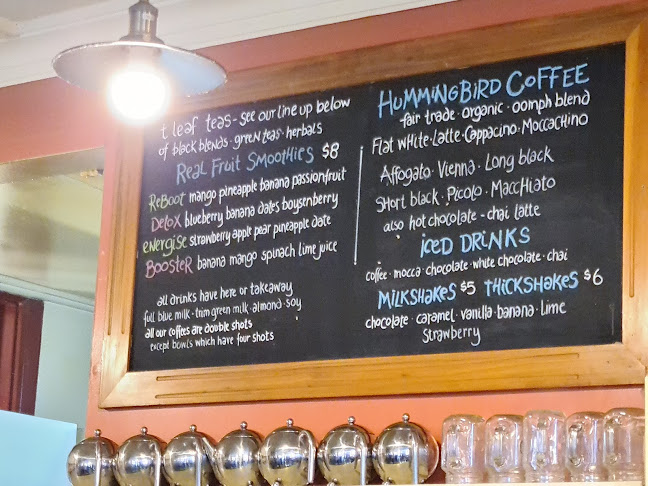 t leaf teas - see our line up below
of black blends · green teas · herbals
Real Fruit Smoothies $8
ReBoot mango pineapple banana passionfruit
Detox blueberry banana dates boysenberry
energise strawberry apple pear pineapple date
Booster banana mango spinach lime juice
all drinks have here or takeaway
full blue milk - trim green milk - almond - soy
all our coffees are double shots
except bowls which have four shots
Hummingbird Coffee
fair trade · organic · oomph blend
Flat White · Latte · Cappacino · Moccachino
Affogato · Vienna · Long black
Short black · Picolo · Macchiato
also hot chocolate - chai latte
iced Drinks
coffee · mocca · chocolate · white chocolate · chai
Milkshakes $5 Thickshakes $6
chocolate · caramel · vanilla · banana · lime
Strawberry